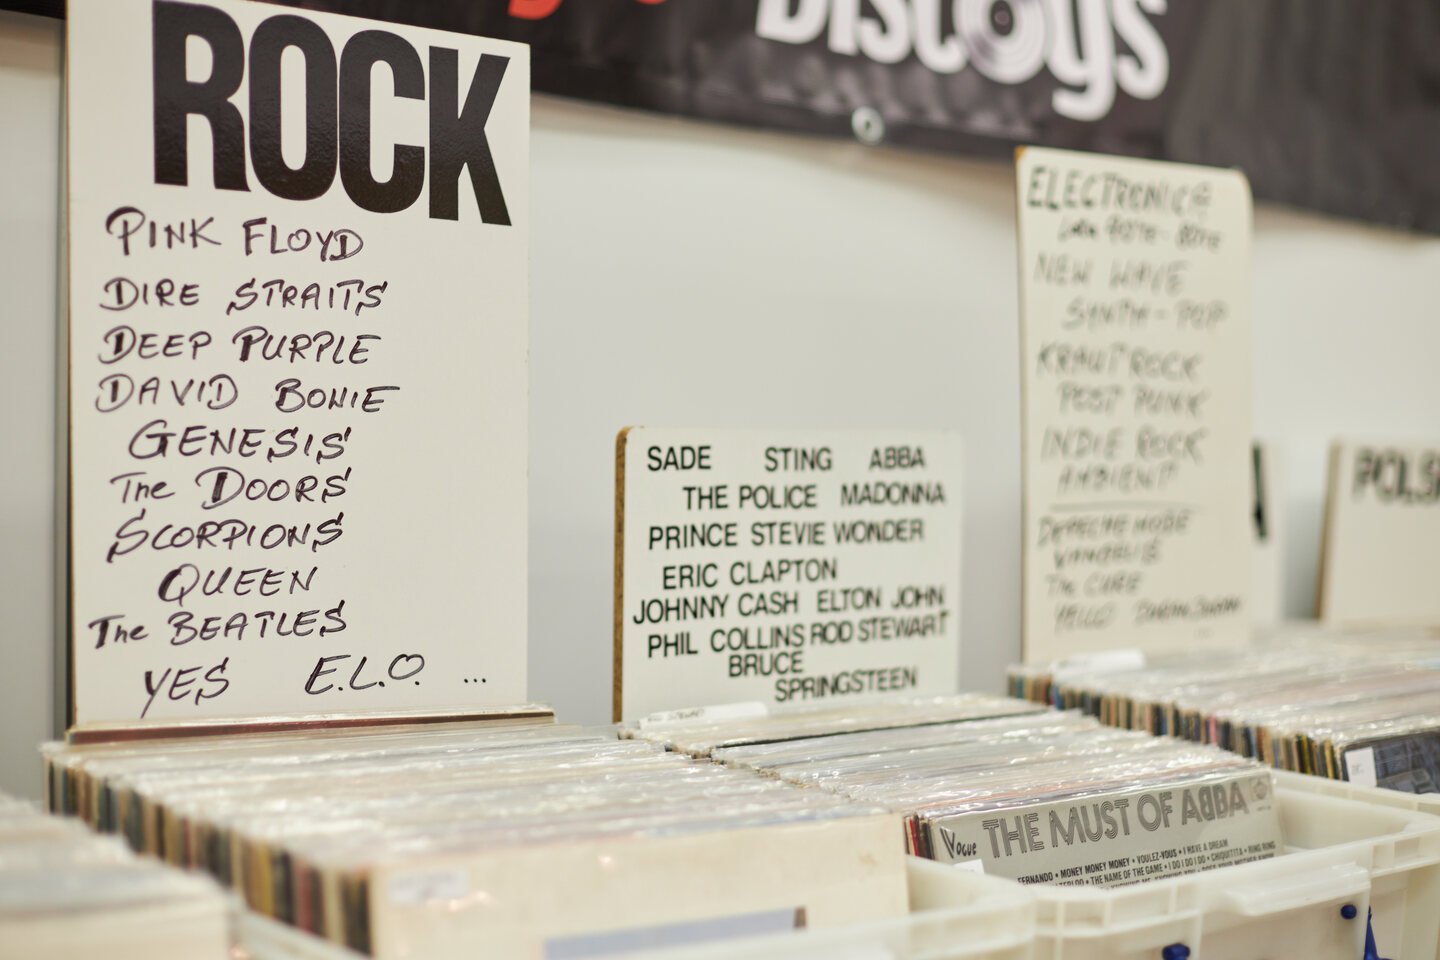 DISCOGS
ROCK
PINK FLOYD
DIRE STRAITS
DEEP PURPLE
DAVID BOWIE
GENESIS
The DOORS
SCORPIONS
QUEEN
The BEATLES
YES E.L.O. ...
SADE STING ABBA
THE POLICE MADONNA
PRINCE STEVIE WONDER
ERIC CLAPTON
JOHNNY CASH ELTON JOHN
PHIL COLLINS ROD STEWART
BRUCE
SPRINGSTEEN
ELECTRONICA
NEW WAVE
SYNTH-POP
KRAUTROCK
POST PUNK
INDIE ROCK
AMBIENT
DEPECHE MODE
VANGELIS
The CURE
YELLO DURAN DURAN
...
POLS
Vogue THE MUST OF ABBA
FERNANDO • MONEY MONEY MONEY • VOULEZ-VOUS • I HAVE A DREAM
• THE NAME OF THE GAME • I DO I DO I DO • CHIQUITITA • RING RING
KNOWING ME, KNOWING YOU • DOES YOUR MOTHER KNOW